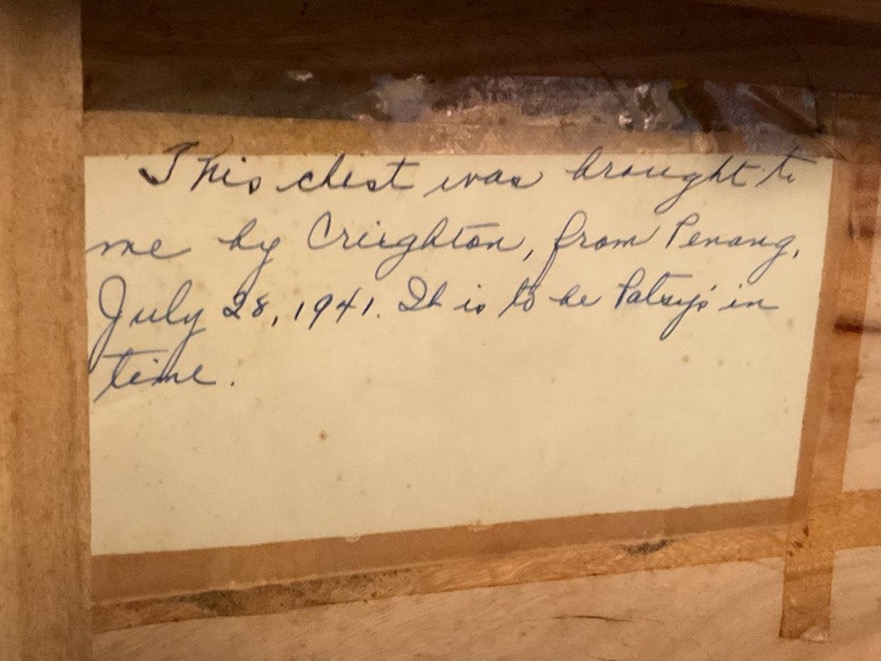 This chest was brought to
me by Crieghton, from Penang,
July 28, 1941. It is to be Patsy's in
time.